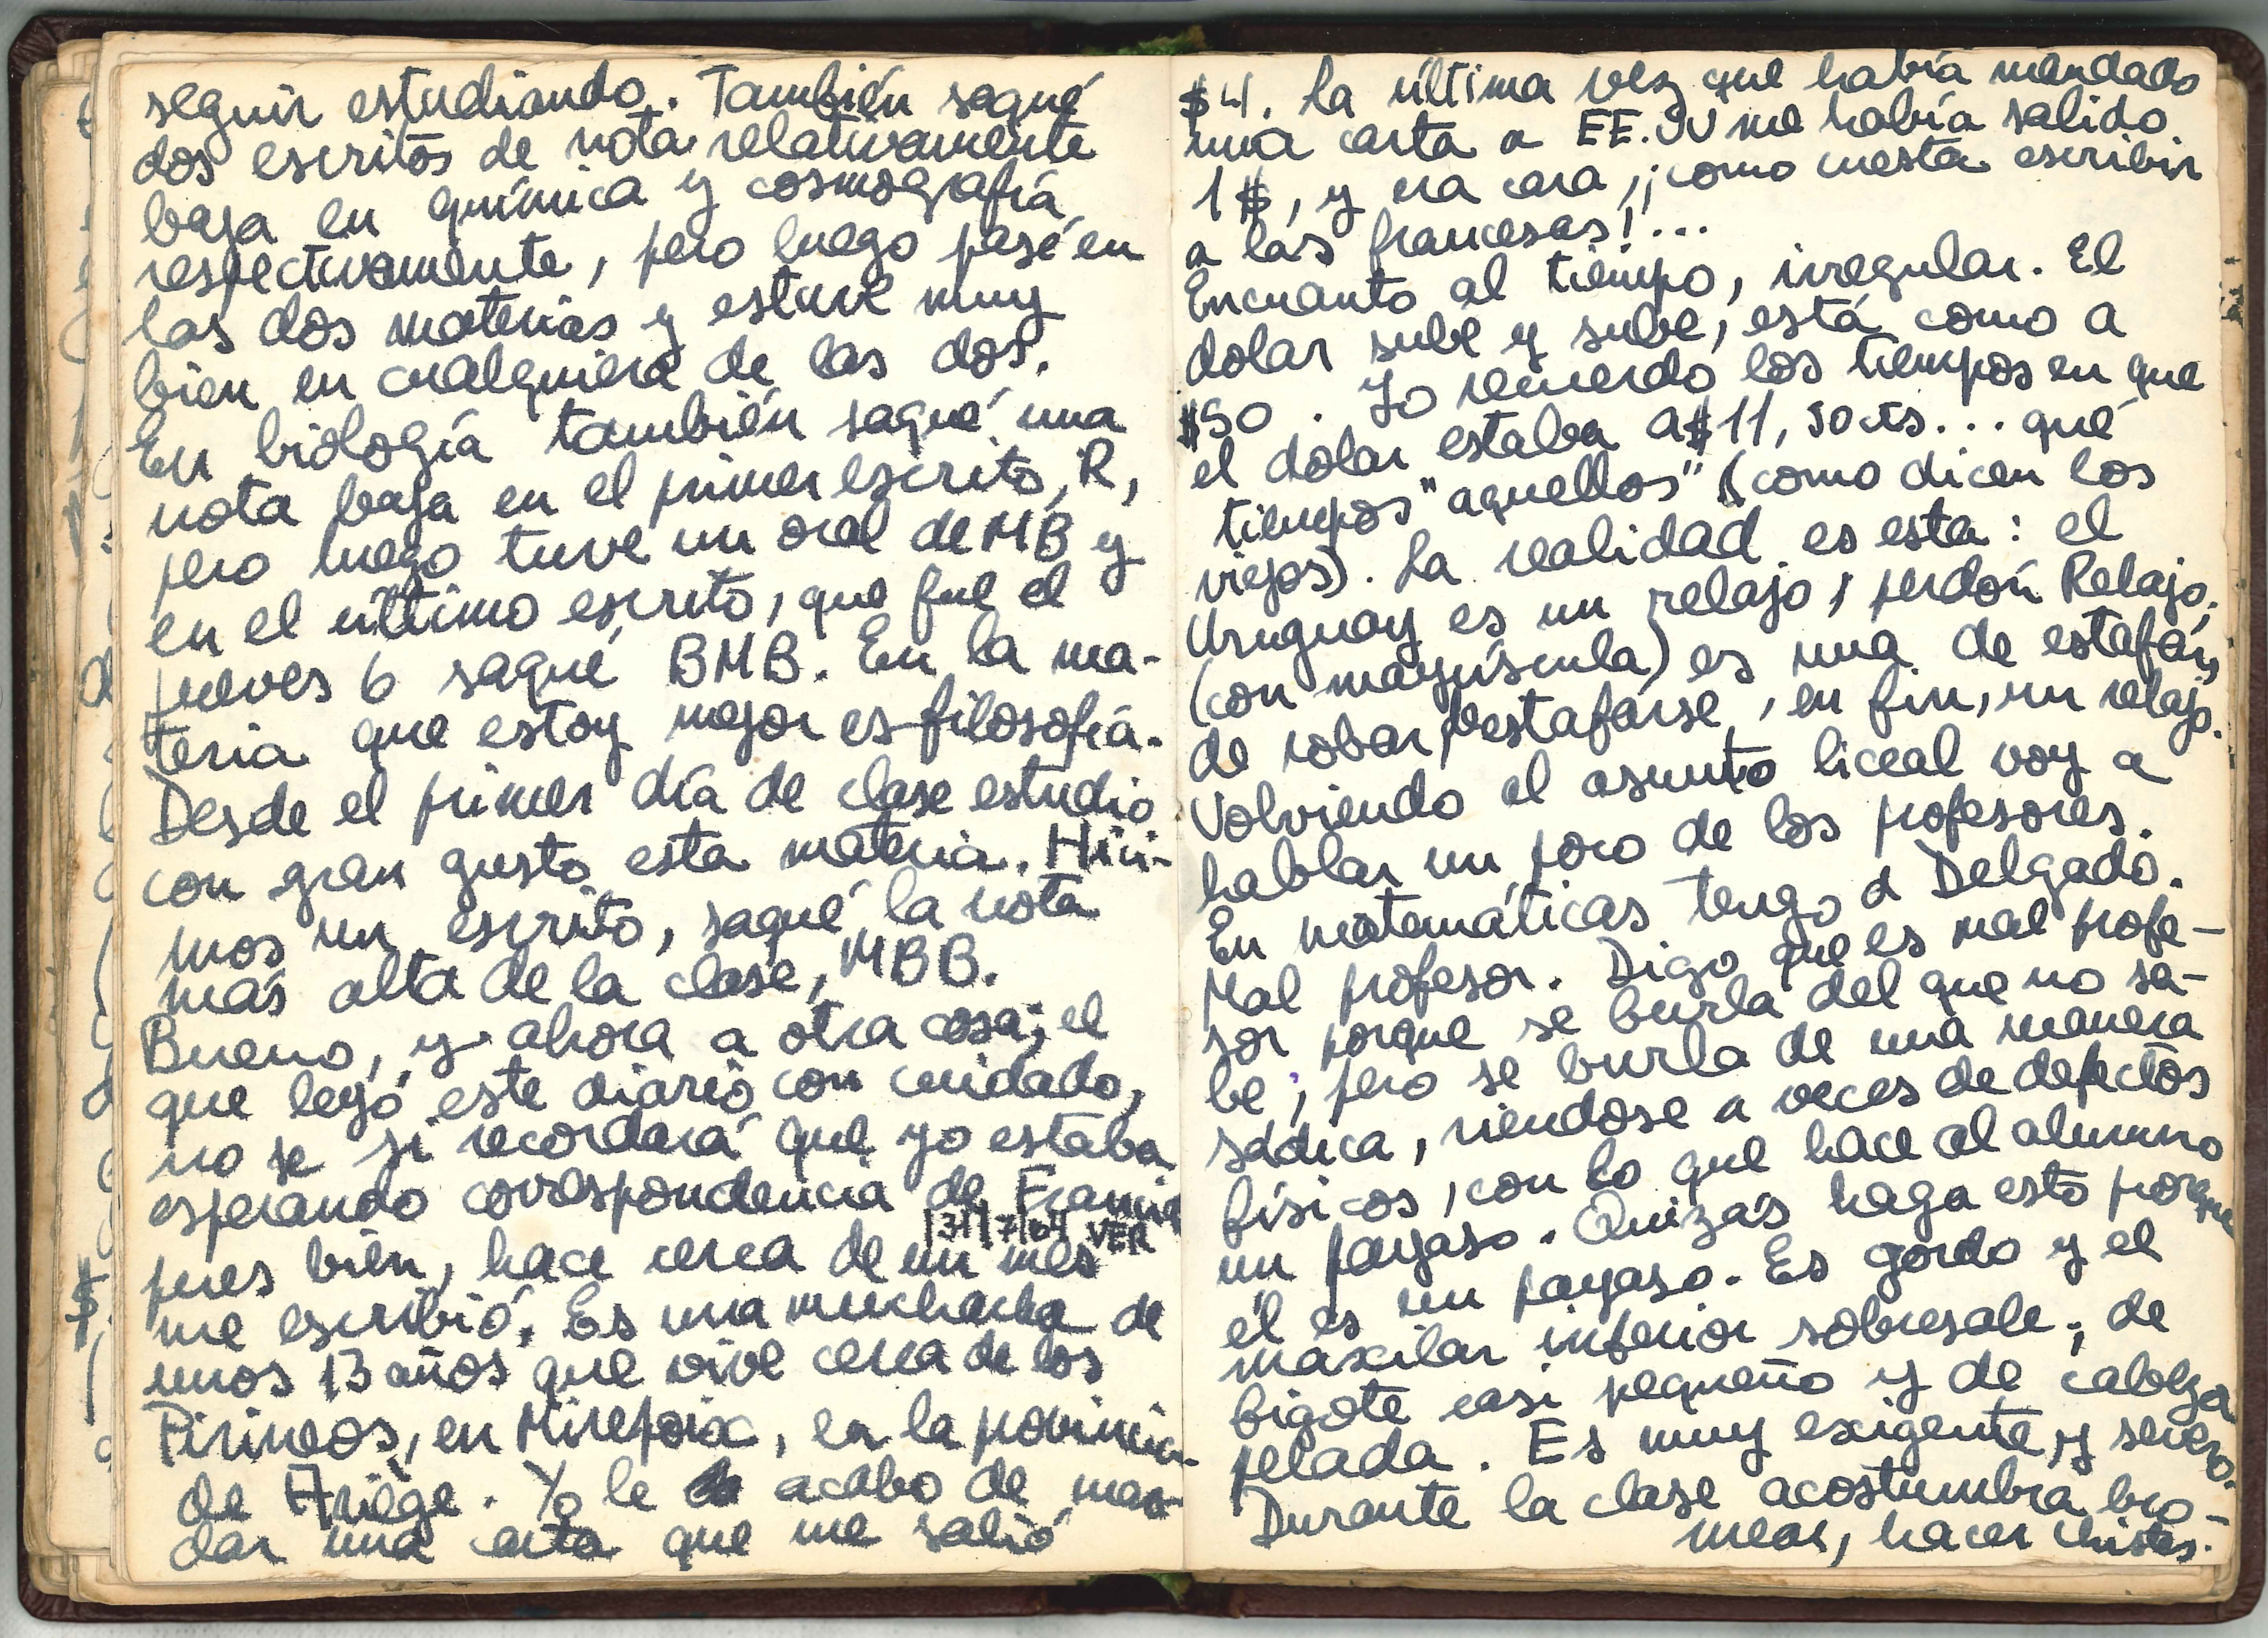 seguir estudiando. También saqué
dos escritos de nota relativamente
baja en química y cosmografía
respectivamente, pero luego pasé en
las dos materias y estuve muy
bien en cualquiera de las dos.
En biología también saqué una
nota baja en el primer escrito, R,
pero luego tuve un oral de MB y
en el último escrito, que fue el
jueves 6 saqué BMB. En la ma-
teria que estoy mejor es filosofía.
Desde el primer día de clase estudio
con gran gusto esta materia. Hici-
mos un escrito, saqué la nota
más alta de la clase, MBB.
Bueno, y ahora a otra cosa; el
que leyó este diario con cuidado,
no se si recordará que yo estaba
esperando correspondencia de Francia
13/7/64 VER
pues bien, hace cerca de un mes
me escribió. Es una muchacha de
unos 13 años que vive cerca de los
Pirineos, en Mirepoix, en la provincia
de Ariège. Yo le acabo de man-
dar una carta que me salió
$4. La última vez que había mandado
una carta a EE.UU me había salido
1$, y era cara, ¡como cuesta escribir
a las francesas!...
Encuanto al tiempo, irregular. El
dolar sube y sube, está como a
$50. Yo recuerdo los tiempos en que
el dolar estaba a $11,50 cts... qué
tiempos "aquellos" (como dicen los
viejos). La realidad es esta: el
Uruguay es un relajo, perdón Relajo,
(con mayúscula) es una de estafar,
de robar, destafarse, en fin, un relajo.
Volviendo al asunto liceal voy a
hablar un poco de los profesores.
En matemáticas tengo a Delgado.
Mal profesor. Digo que es mal profe-
sor porque se burla del que no sa-
be; pero se burla de una manera
sádica, riendose a veces de defectos
físicos, con lo que hace al alumno
un payaso. Quizás haga esto porque
él es un payaso. Es gordo y el
maxilar inferior sobresale; de
bigote casi pequeño y de cabeza
pelada. Es muy exigente y severo.
Durante la clase acostumbra bro-
mear, hacer chistes.